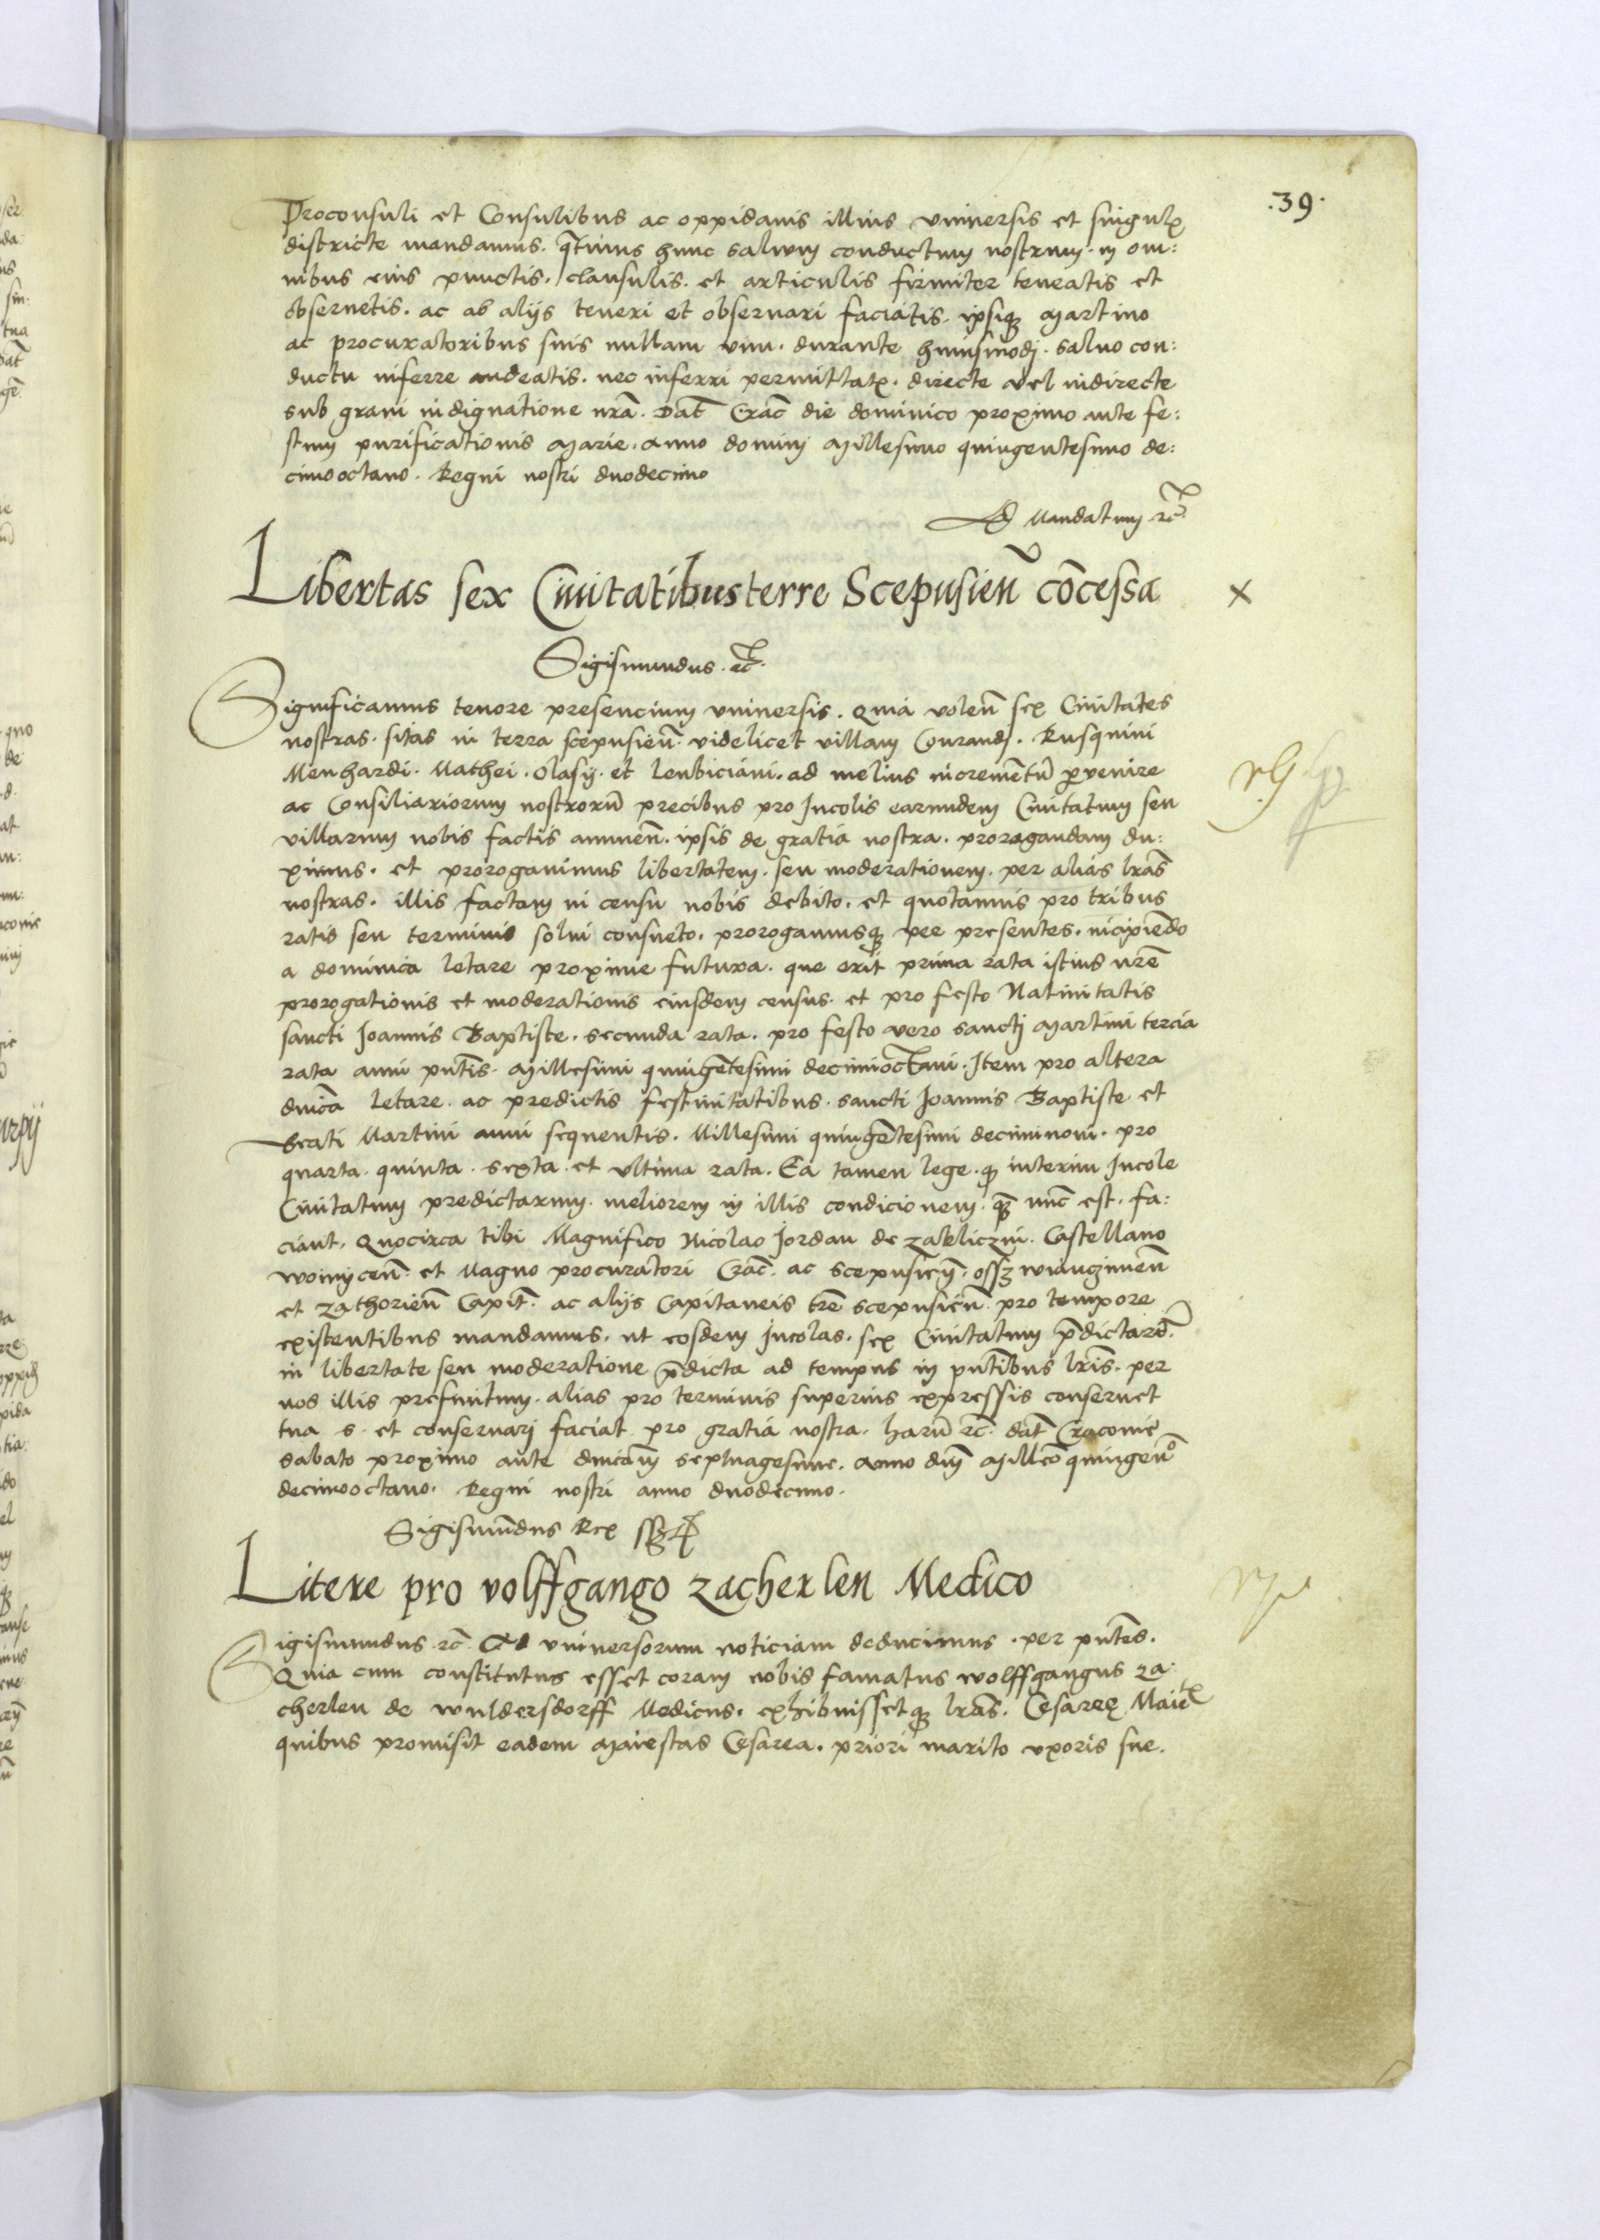 .39.
Proconsuli et Consulibus ac oppidanis illius vniuersis et singulis
districte mandamus. q̃tinus hunc saluum conductum nostrum. in om:
nibus eius punctis. clausulis. et articulis firmiter teneatis et
obseruetis. ac ab alijs teneri et obseruari faciatis. ipsiq; Martino
ac procuratoribus suis nullam vim. durante huiusmodj. saluo con:
ductu inferre audeatis. nec inferri permittatis. directe vel indirecte
sub graui indignatione nr̃a. Dat̃ Crac̃ die dominico proximo ante fe:
stum purificationis Marie. Anno dominj Millesimo quingentesimo de:
cimooctauo. Regni nostri duodecimo
Ad Mandatum rc̃.
Libertas sex Ciuitatibus terre Scepusien̄ cōcessa
Sigismundus. rc̃.
Significamus tenore presencium vniuersis. Quia volen̄ sex Ciuitates
nostras. sitas in terra scepusien̄. videlicet villam Conradj. Rusquini
Menhardi. Mathei. Olasij. et Leubiciani. ad melius incremētū ꝑuenire
ac Consiliariorum nostrorū precibus pro Incolis earundem Ciuitatum seu
villarum nobis factis annuen̄. ipsis de gratia nostra. prorogandam du:
ximus. et prorogauimus libertatem. seu moderationem. per alias lr̃as
nostras. illis factam in censu nobis debito. et quotannis pro tribus
ratis seu terminis solui consueto. prorogamusq; per presentes. incipiēdo
a dominica letare proxime futura. que erit prima rata istius nr̃e
prorogationis et moderationis eiusdem census. et pro festo Natiuitatis
sancti Joannis Baptiste. secunda rata. pro festo vero sanctj Martini tercia
rata anni pn̄tis. Millesimi quingētesimi decimioctaui. Item pro altera
dn̄ica letare. ac predictis festiuitatibus. sancti Joannis Baptiste et
beati Martini anni sequentis. Millesimi quingētesimi deciminoni. pro
quarta. quinta. sexta. et vltima rata. Ea tamen lege. q; interim Incole
Ciuitatum predictarum. meliorem in illis condicionem. q̃ nūc est. fa:
ciant. Quocirca tibi Magnifico Nicolao Jordan de Zakliczin. Castellano
woinycen̄. et Magno procuratori Crac̃. ac scepusien̄. osswianczimen̄
et Zathorien̄ Capit̃. ac alijs Capitaneis tr̃e scepusien̄. pro tempore
existentibus mandamus. ut eosdem Incolas. sex Ciuitatum p̄dictarū.
in libertate seu moderatione p̄dicta ad tempus in pn̄tibus lr̃is. per
nos illis prefinitum. alias pro terminis superius expressis conseruet
tua s. et conseruarj faciat pro gratia nostra. harū rc̃. dat̃ Cracouie
sabato proximo ante dn̄icam septuagesime. Anno dn̄j Mill̃o quingen̄o
decimooctauo. Regni nostri anno duodecimo.
Sigismūdus Rex ss
Litere pro volffgango zacherlen Medico
Sigismundus. rc̃. Ad vniuersorum noticiam deducimus. per pn̄tes.
Quia cum constitutus esset coram nobis famatus wolffgangus za:
cherlen de wuldersdorff Medicus. exhibuissetq; lr̃as. Cesaree Maiet̃
quibus promisit eadem Maiestas Cesarea. priori marito vxoris sue.